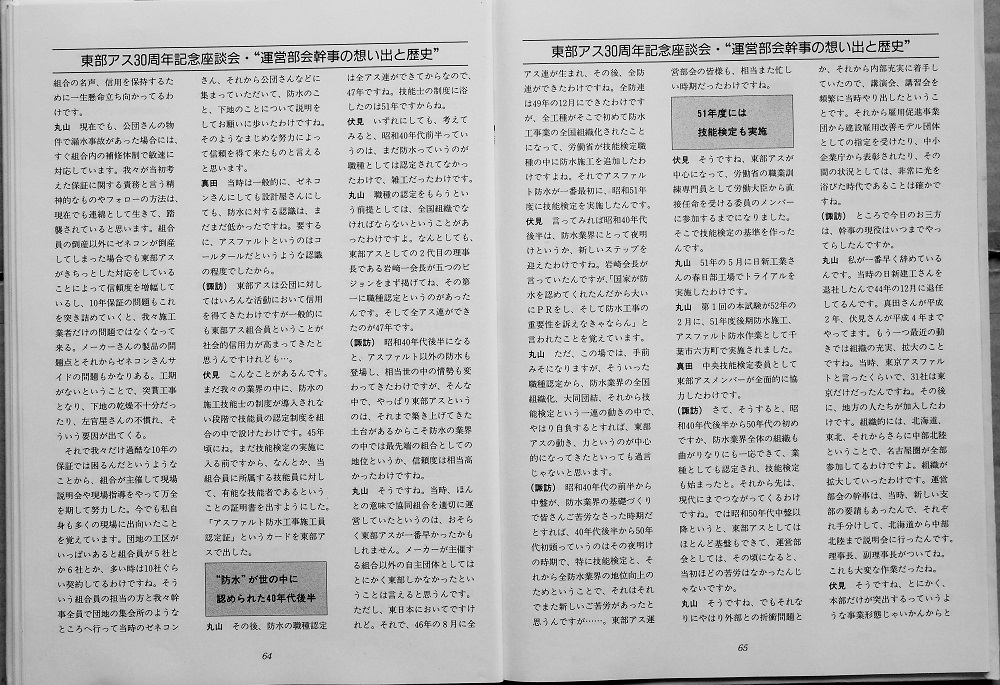 東部アス30周年記念座談会・“運営部会幹事の想い出と歴史”
組合の名声、信用を保持するた
めに一生懸命立ち向かってるわ
けです。
丸山　現在でも、公団さんの物
件で漏水事故があった場合には、
すぐ組合内の補修体制で敏速に
対応しています。我々が当初考
えた保証に関する責務と言う精
神的なものやフォローの方法は、
現在でも連綿として生きて、踏
襲されていると思います。組合
員の倒産以外にゼネコンが倒産
してしまった場合でも東部アス
がきちっとした対応をしている
ことによって信頼度を増幅して
いるし、10年保証の問題もこれ
を突き詰めていくと、我々施工
業者だけの問題ではなくなって
来る。メーカーさんの製品の問
題点とそれからゼネコンさんサ
イドの問題もかなりある。工期
がないということで、突貫工事
となり、下地の乾燥不十分だっ
たり、左官屋さんの不慣れ、そ
ういう要因が出てくる。
それで我々だけ過酷な10年の
保証では困るんだというような
ことから、組合が主催して現場
説明会や現場指導をやって万全
を期して努力した。今でも私自
身も多くの現場に出向いたこと
を覚えています。団地の工区が
いっぱいあると組合員が５社と
か６社とか、多い時は10社ぐら
い契約してるわけですね。そう
いう組合員の担当の方と我々幹
事全員で団地の集会所のような
ところへ行って当時のゼネコン
さん、それから公団さんなどに
集まっていただいて、防水のこ
と、下地のことについて説明を
してお願いに歩いたわけですね。
そのようなまじめな努力によっ
て信頼を得て来たものと言える
と思います。
真田　当時は一般的に、ゼネコ
ンさんにしても設計屋さんにし
ても、防水に対する認識は、ま
だまだ低かったですね。要する
に、アスファルトというのはコ
ールタールだというような認識
の程度でしたから。
(諏訪)　東部アスは公団に対し
てはいろんな活動において信用
を得てきたわけですが一般的に
も東部アス組合員ということが
社会的信用力が高まってきたと
思うんですけれども…。
伏見　こんなことがあるんです。
まだ我々の業界の中に、防水の
施工技能士の制度が導入されな
い段階で技能員の認定制度を組
合の中で設けたわけです。45年
頃にね。まだ技能検定の実施に
入る前ですから、なんとか、当
組合員に所属する技能員に対し
て、有能な技能者であるという
ことの証明書を出すようにした。
「アスファルト防水工事施工員
認定証」というカードを東部ア
スで出した。
“防水”が世の中に
認められた40年代後半
丸山　その後、防水の職種認定
は全アス連ができてからなので、
47年ですね。技能士の制度に浴
したのは51年ですからね。
伏見　いずれにしても、考えて
みると、昭和40年代前半ってい
うのは、まだ防水っていうのが
職種としては認定されてなかっ
たわけで、雑工だったわけです。
丸山　職種の認定をもらうとい
う前提としては、全国組織でな
ければならないということがあ
ったわけですよ。なんとしても、
東部アスとしての２代目の理事
長である岩崎一会長が五つのビ
ジョンをまず掲げてね、その第
一に職種認定というのがあった
んです。そして全アス連ができ
たのが47年です。
(諏訪)　昭和40年代後半になる
と、アスファルト以外の防水も
登場し、相当世の中の情勢も変
わってきたわけですが、そんな
中で、やっぱり東部アスという
のは、それまで築き上げてきた
土台があるからこそ防水の業界
の中では最先端の組合としての
地位というか、信頼度は相当高
かったわけですね。
丸山　そうですね。当時、ほん
との意味で協同組合を適切に運
営していたというのは、おそら
く東部アスが一番早かったかも
しれません。メーカーが主催す
る組合以外の自主団体としては
とにかく東部しかなかったとい
うことは言えると思うんです。
ただし、東日本においてですけ
れど。それで、46年の８月に全
64
東部アス30周年記念座談会・“運営部会幹事の想い出と歴史”
アス連が生まれ、その後、全防
連ができたわけですね。全防連
は49年の12月にできたわけです
が、全工種がそこで初めて防水
工事業の全国組織化されたこと
になって、労働省が技能検定職
種の中に防水施工を追加したわ
けですよね。それでアスファル
ト防水が一番最初に、昭和51年
度に技能検定を実施したんです。
伏見　言ってみれば昭和40年代
後半は、防水業界にとって夜明
けというか、新しいステップを
迎えたわけですね。岩崎会長が
言っていたんですが、「国家が防
水を認めてくれたんだから大い
にＰＲをし、そして防水工事の
重要性を訴えなきゃならん」と
言われたことを覚えています。
丸山　ただ、この場では、手前
みそになりますが、そういった
職種認定から、防水業界の全国
組織化、大同団結、それから技
能検定という一連の動きの中で、
やはり自負をするとすれば、東部
アスの動き、力というのが中心
的になってきたといっても過言
じゃないと思います。
(諏訪)　昭和40年代の前半から
中盤が、防水業界の基礎づくり
で皆さんご苦労なさった時期だ
とすれば、40年代後半から50年
代初頭っていうのはその夜明け
の時期で、特に技能検定と、そ
れから全防水業界の地位向上の
ためということで、それはそれ
でまた新しいご苦労があったと
思うんですが……。東部アス運
営部会の皆様も、相当また忙し
い時期だったわけですね。
51年度には
技能検定も実施
伏見　そうですね、東部アスが
中心になって、労働省の職業訓
練専門員として労働大臣から直
接任命を受ける委員のメンバー
に参加するまでになりました。
そこで技能検定の基準を作った
んです。
丸山　51年の５月に日新工業さ
んの春日部工場でトライアルを
実施したわけです。
丸山　第１回の本試験が52年の
２月に、51年度後期防水施工、
アスファルト防水作業として千
葉市六方町で実施されました。
真田　中央技能検定委員として
東部アスメンバーが全面的に協
力したわけです。
(諏訪)　さて、そうすると、昭
和40年代後半から50年代の初め
ですか、防水業界全体の組織も
曲がりなりにも一応できて、業
種としても認定され、技能検定
も始まったと。それから先は、
現代にまでつながってくるわけ
ですね。では昭和50年代中盤以
降というと、東部アスとしては
ほとんど基盤もできて、運営部
会としては、その頃になると、
当初ほどの苦労はなかったんじ
ゃないですか。
丸山　そうですね、でもそれな
りにやはり外部との折衝問題と
か、それから内部充実に着手し
ていたので、講演会、講習会を
頻繁に当時やり出したというこ
とです。それから雇用促進事業
団から建設雇用改善モデル団体
としての指定を受けたり、中小
企業庁から表彰されたり、その
間の状況としては、非常に光を
浴びた時代であることは確かで
すね。
(諏訪)　ところで今日のお三方
は、幹事の現役はいつまでやっ
てらしたんですか。
丸山　私が一番早く辞めている
んです。当時の日新建工さんを
退社したんで44年の12月に退任
してるんです。真田さんが平成
２年、伏見さんが平成４年まで
やってます。もう一つ最近の動
きでは組織の充実、拡大のこと
ですね。当時、東京アスファル
トと言ったくらいで、31社は東
京だけだったんですね。その後
に、地方の人たちが加入したわ
けです。組織的には、北海道、
東北、それからさらに中部北陸
ということで、名古屋圏が全部
参加してるわけですよ。組織が
拡大していったわけです。運営
部会の幹事は、当時、新しい支
部の要請もあったんで、それぞ
れ手分けして、北海道から中部
北陸まで説明会に行ったんです。
理事長、副理事長がついてね。
これも大変な作業だったね。
伏見　そうですね、とにかく、
本部だけが突出するっていうよ
うな事業形態じゃいかんからと
65